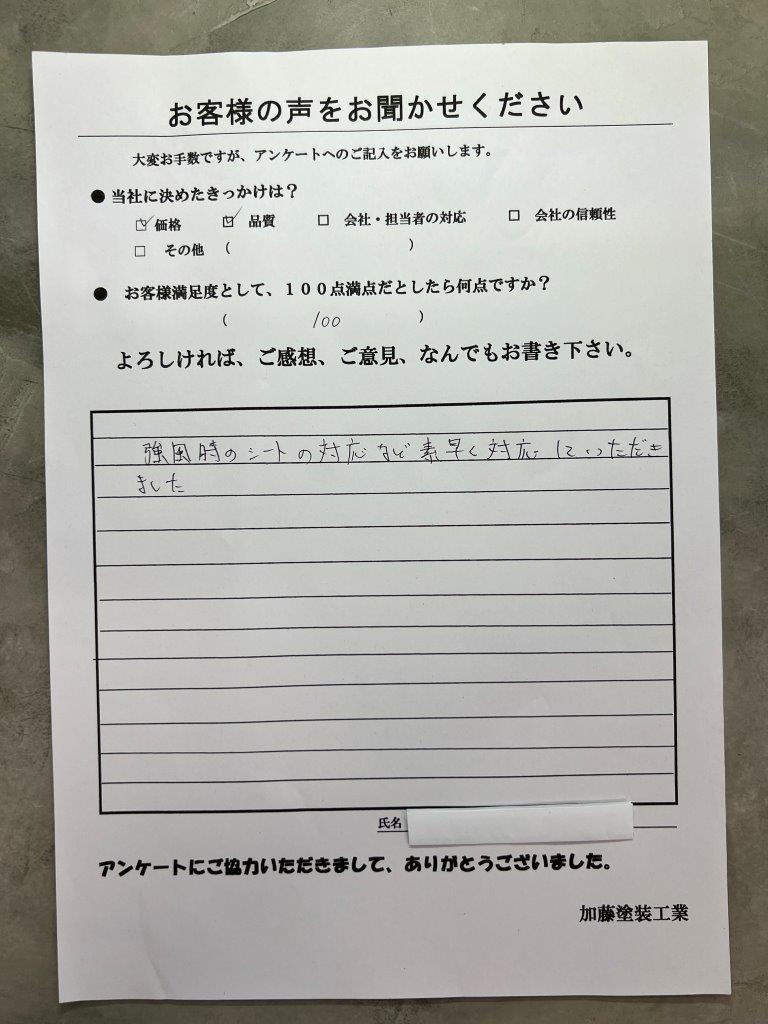 お客様の声をお聞かせください
大変お手数ですが、アンケートへのご記入をお願いします。
●当社に決めたきっかけは？
☑価格 ☑品質 □会社・担当者の対応 □会社の信頼性
□その他（ ）
● お客様満足度として、１００点満点だとしたら何点ですか？
（ 100 ）
よろしければ、ご感想、ご意見、なんでもお書き下さい。
強風時のシートの対応など素早く対応していただき
ました
氏名
アンケートにご協力いただきまして、ありがとうございました。
加藤塗装工業